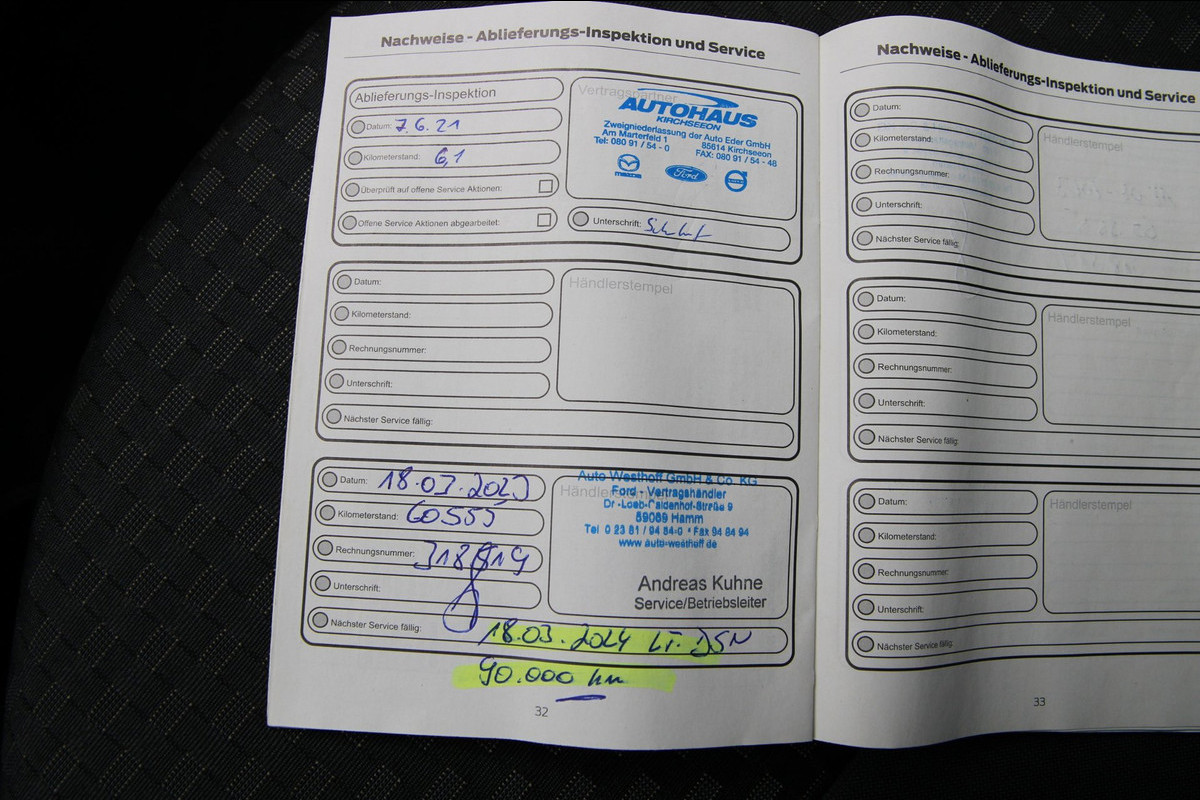 Nachweise - Ablieferungs-Inspektion und Service
Ablieferungs-Inspektion
Datum: 7.6.21
Kilometerstand: 6,1
Überprüft auf offene Service Aktionen:
Offene Service Aktionen abgearbeitet:
Vertragspartner
AUTOHAUS
KIRCHSEEON
Zweigniederlassung der Auto Eder GmbH
Am Marterfeld 1 85614 Kirchseeon
Tel: 080 91 / 54 - 0 FAX: 080 91 / 54 - 48
mazda Ford VOLVO
Unterschrift:
Datum:
Kilometerstand:
Rechnungsnummer:
Unterschrift:
Nächster Service fällig:
Händlerstempel
Datum: 18.03.2023
Kilometerstand: 60555
Rechnungsnummer:
Unterschrift:
Nächster Service fällig: 18.03.2024 LT. DSN
90.000 km
Auto Westhoff GmbH & Co. KG
Ford - Vertragshändler
Dr.-Loeb-Caldenhof-Straße 9
59069 Hamm
Tel 0 23 81 / 94 84-0 * Fax 94 84 94
www.auto-westhoff.de
Andreas Kuhne
Service/Betriebsleiter
32
Nachweise - Ablieferungs-Inspektion und Service
Datum:
Kilometerstand:
Rechnungsnummer:
Unterschrift:
Nächster Service fällig:
Händlerstempel
Datum:
Kilometerstand:
Rechnungsnummer:
Unterschrift:
Nächster Service fällig:
Händlerstempel
Datum:
Kilometerstand:
Rechnungsnummer:
Unterschrift:
Nächster Service fällig:
Händlerstempel
33